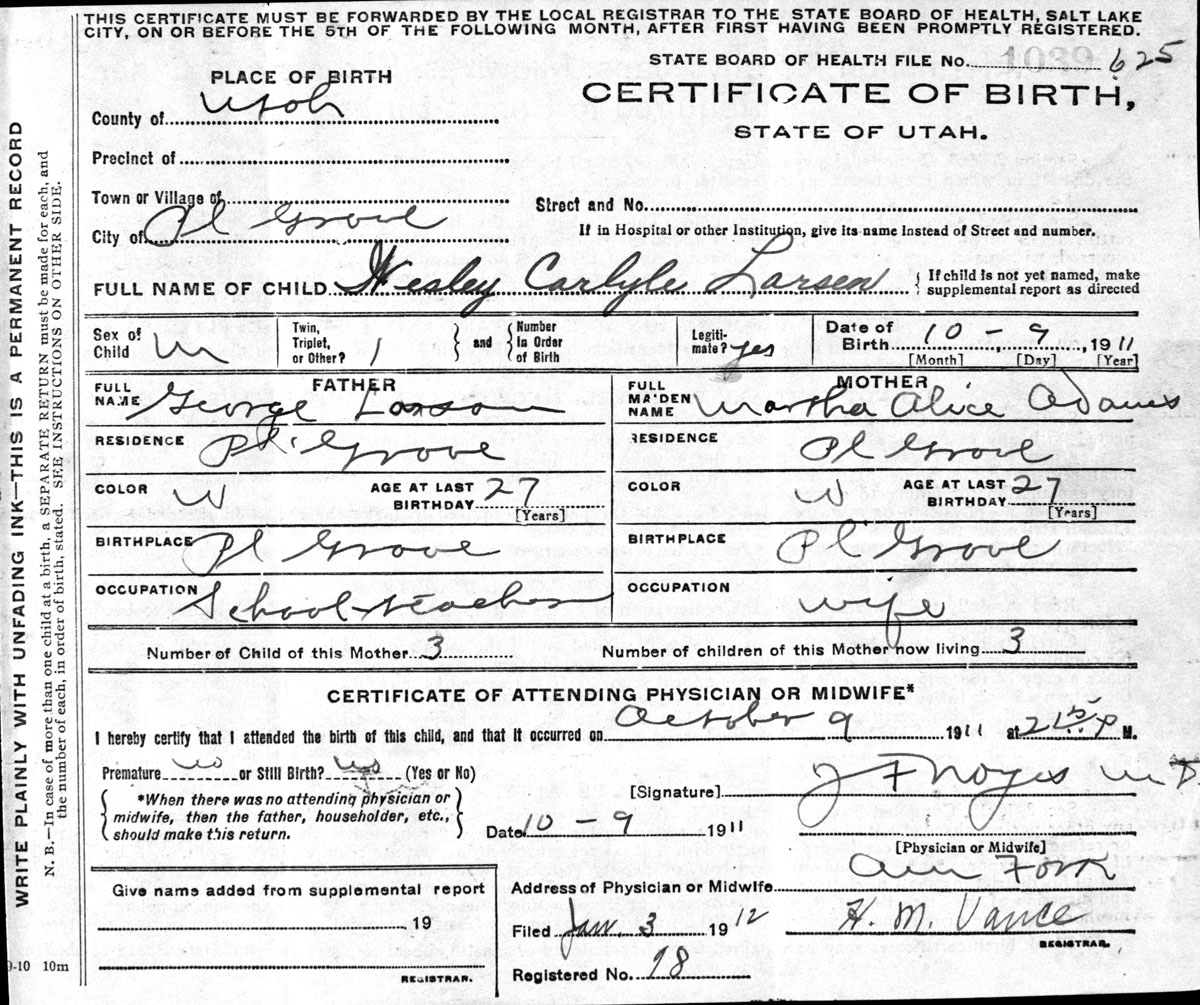 THIS CERTIFICATE MUST BE FORWARDED BY THE LOCAL REGISTRAR TO THE STATE BOARD OF HEALTH, SALT LAKE
CITY, ON OR BEFORE THE 5TH OF THE FOLLOWING MONTH, AFTER FIRST HAVING BEEN PROMPTLY REGISTERED.
WRITE PLAINLY WITH UNFADING INK—THIS IS A PERMANENT RECORD
N. B.—In case of more than one child at a birth, a SEPARATE RETURN must be made for each, and
the number of each, in order of birth, stated. SEE INSTRUCTIONS ON OTHER SIDE.
STATE BOARD OF HEALTH FILE No. 625
CERTIFICATE OF BIRTH,
STATE OF UTAH.
PLACE OF BIRTH
County of Utah
Precinct of
Town or Village of
City of Pl Grove
Street and No.
If in Hospital or other Institution, give its name instead of Street and number.
FULL NAME OF CHILD Wesley Carlyle Larsen { If child is not yet named, make
supplemental report as directed
Sex of Child m
Twin, Triplet, or Other? 1 } and { Number In Order of Birth
Legiti-mate? yes
Date of Birth 10 - 9, 1911
[Month] [Day] [Year]
FATHER
FULL NAME George Larson
RESIDENCE Pl Grove
COLOR W AGE AT LAST BIRTHDAY 27
[Years]
BIRTHPLACE Pl Grove
OCCUPATION School teacher
MOTHER
FULL MAIDEN NAME Martha Alice Adams
RESIDENCE Pl Grove
COLOR W AGE AT LAST BIRTHDAY 27
[Years]
BIRTHPLACE Pl Grove
OCCUPATION wife
Number of Child of this Mother 3 Number of children of this Mother now living 3
CERTIFICATE OF ATTENDING PHYSICIAN OR MIDWIFE*
I hereby certify that I attended the birth of this child, and that it occurred on October 9 1911 at 2 15 P M.
Premature no or Still Birth? (Yes or No)
{ *When there was no attending physician or
midwife, then the father, householder, etc.,
should make this return. }
[Signature] J F Noyes M D
Date 10 - 9 1911
[Physician or Midwife]
Address of Physician or Midwife Am Fork
Filed Jan. 3 1912 H. M. Vance
REGISTRAR.
Registered No. 98
Give name added from supplemental report
19
REGISTRAR.
9-10 10m